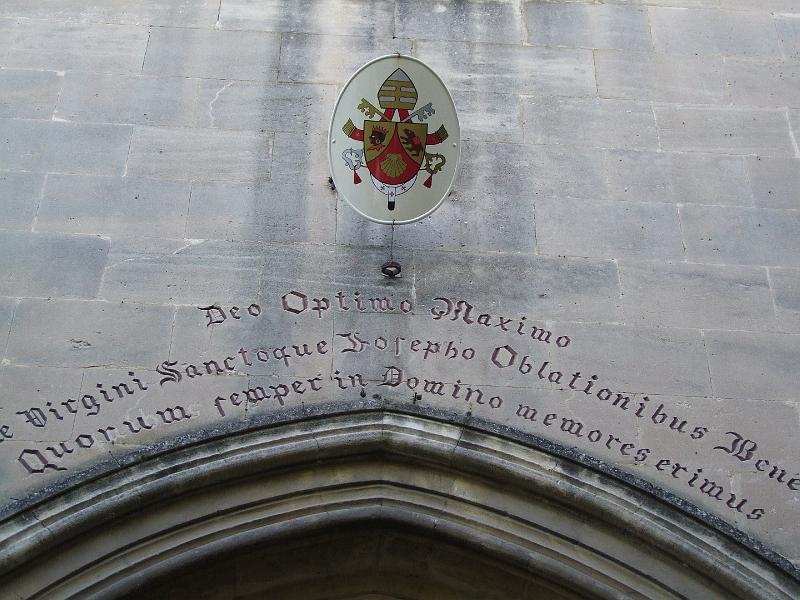 Deo Optimo Maximo
e Virgini Sanctoque Josepho Oblationibus Bene
Quorum semper in Domino memores erimus